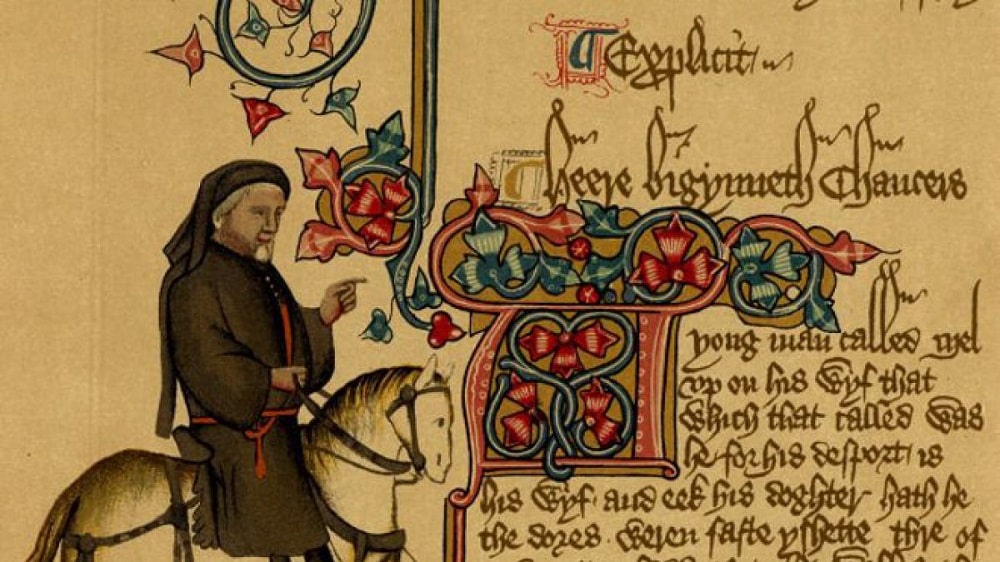 Explicit
Heere bigynneth Chaucers
A yong man called Mel
vp on his Wyf that
Which that called Was
he for his desport is
his Wyf and eek his doghter hath he
the dores weren faste yshette thre of